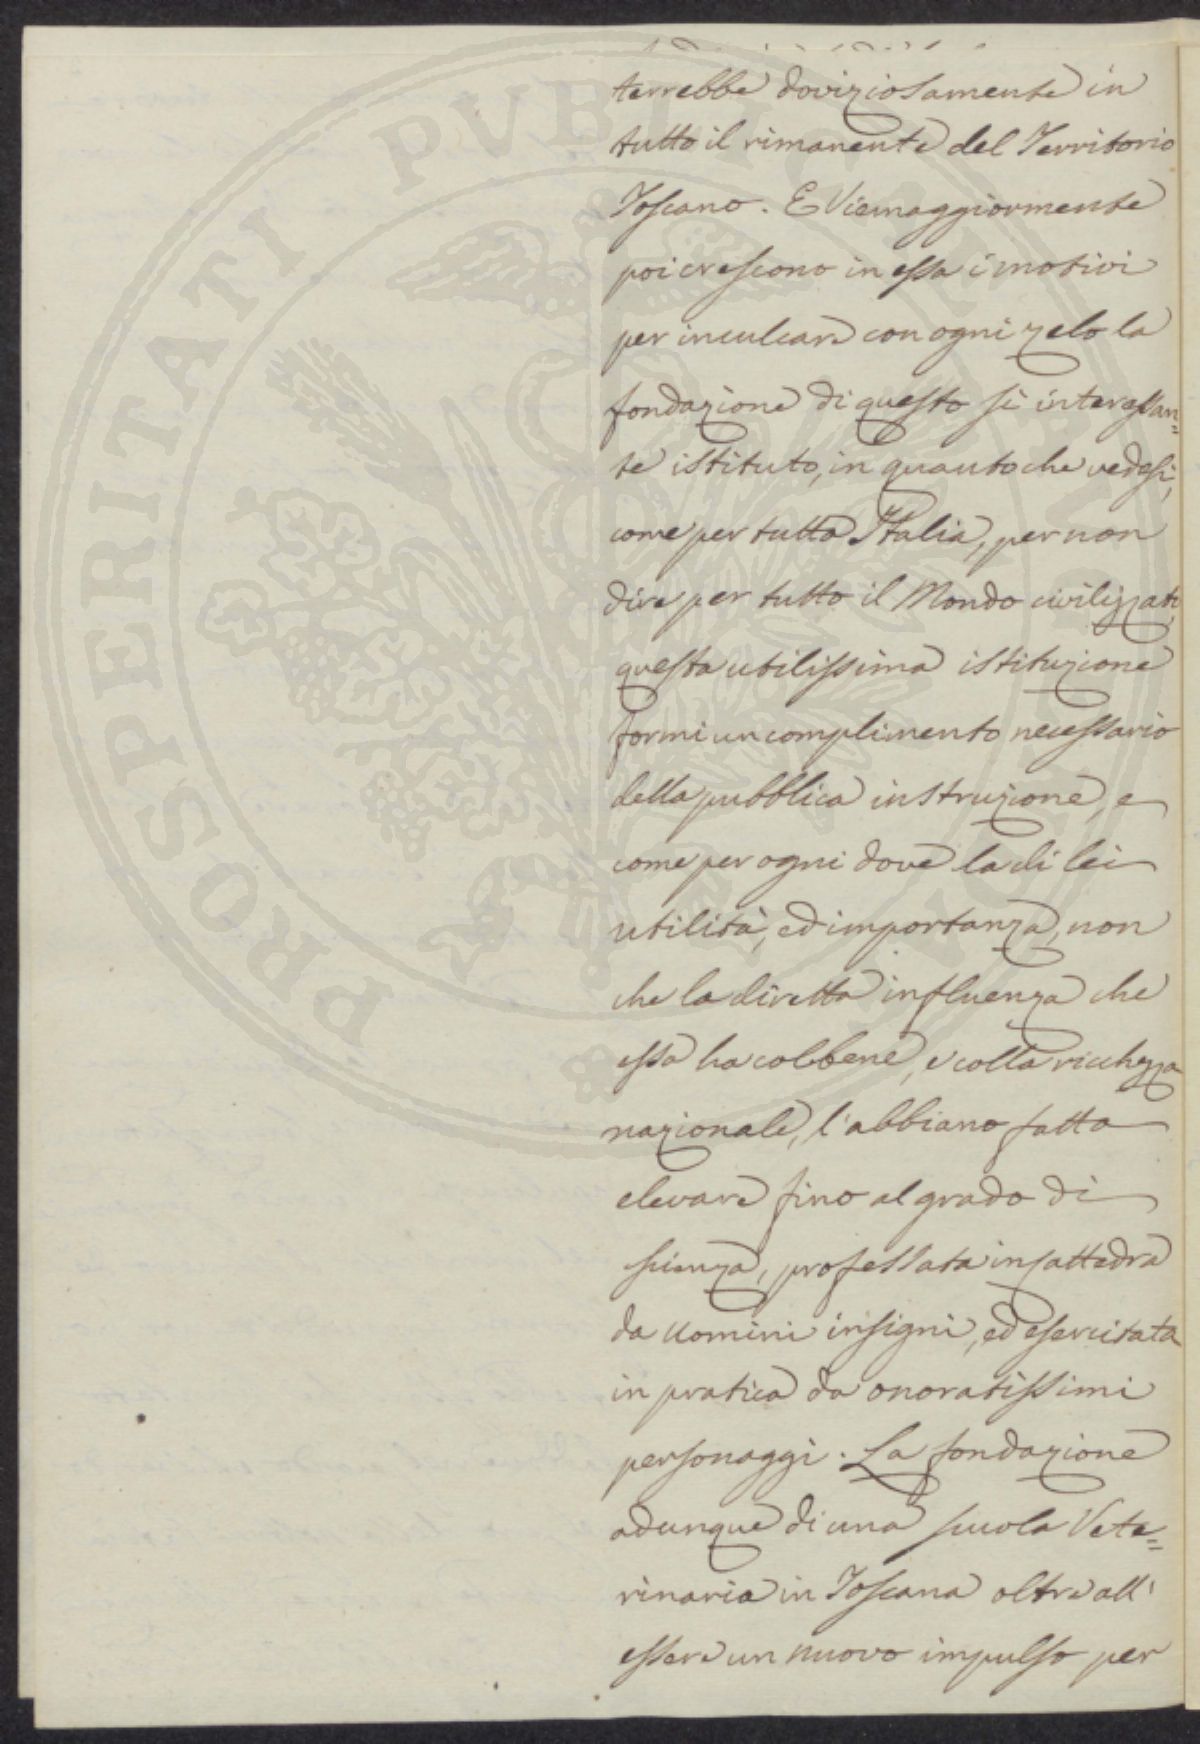 terrebbe doviziosamente in
tutto il rimanente del Territorio
Toscano. E Viemaggiormente
poi crescono in essa i motivi
per inculcare con ogni zelo la
fondazione di questo sì interessan=
te istituto, in quanto che vedesi,
come per tutta Italia, per non
dire per tutto il Mondo civilizzato,
questa utilissima istituzione
formi un complimento necessario
della pubblica instruzione, e
come per ogni dove la di lei
utilità, ed importanza, non
che la diretta influenza che
essa ha col bene, e colla ricchezza
nazionale, l'abbiano fatta
elevare fino al grado di
scienza, professata in cattedra
da uomini insigni, ed esercitata
in pratica da onoratissimi
personaggi. La fondazione
adunque di una scuola Vete=
rinaria in Toscana oltre all'
essere un nuovo impulso per
PROSPERITATI PUBLICAE